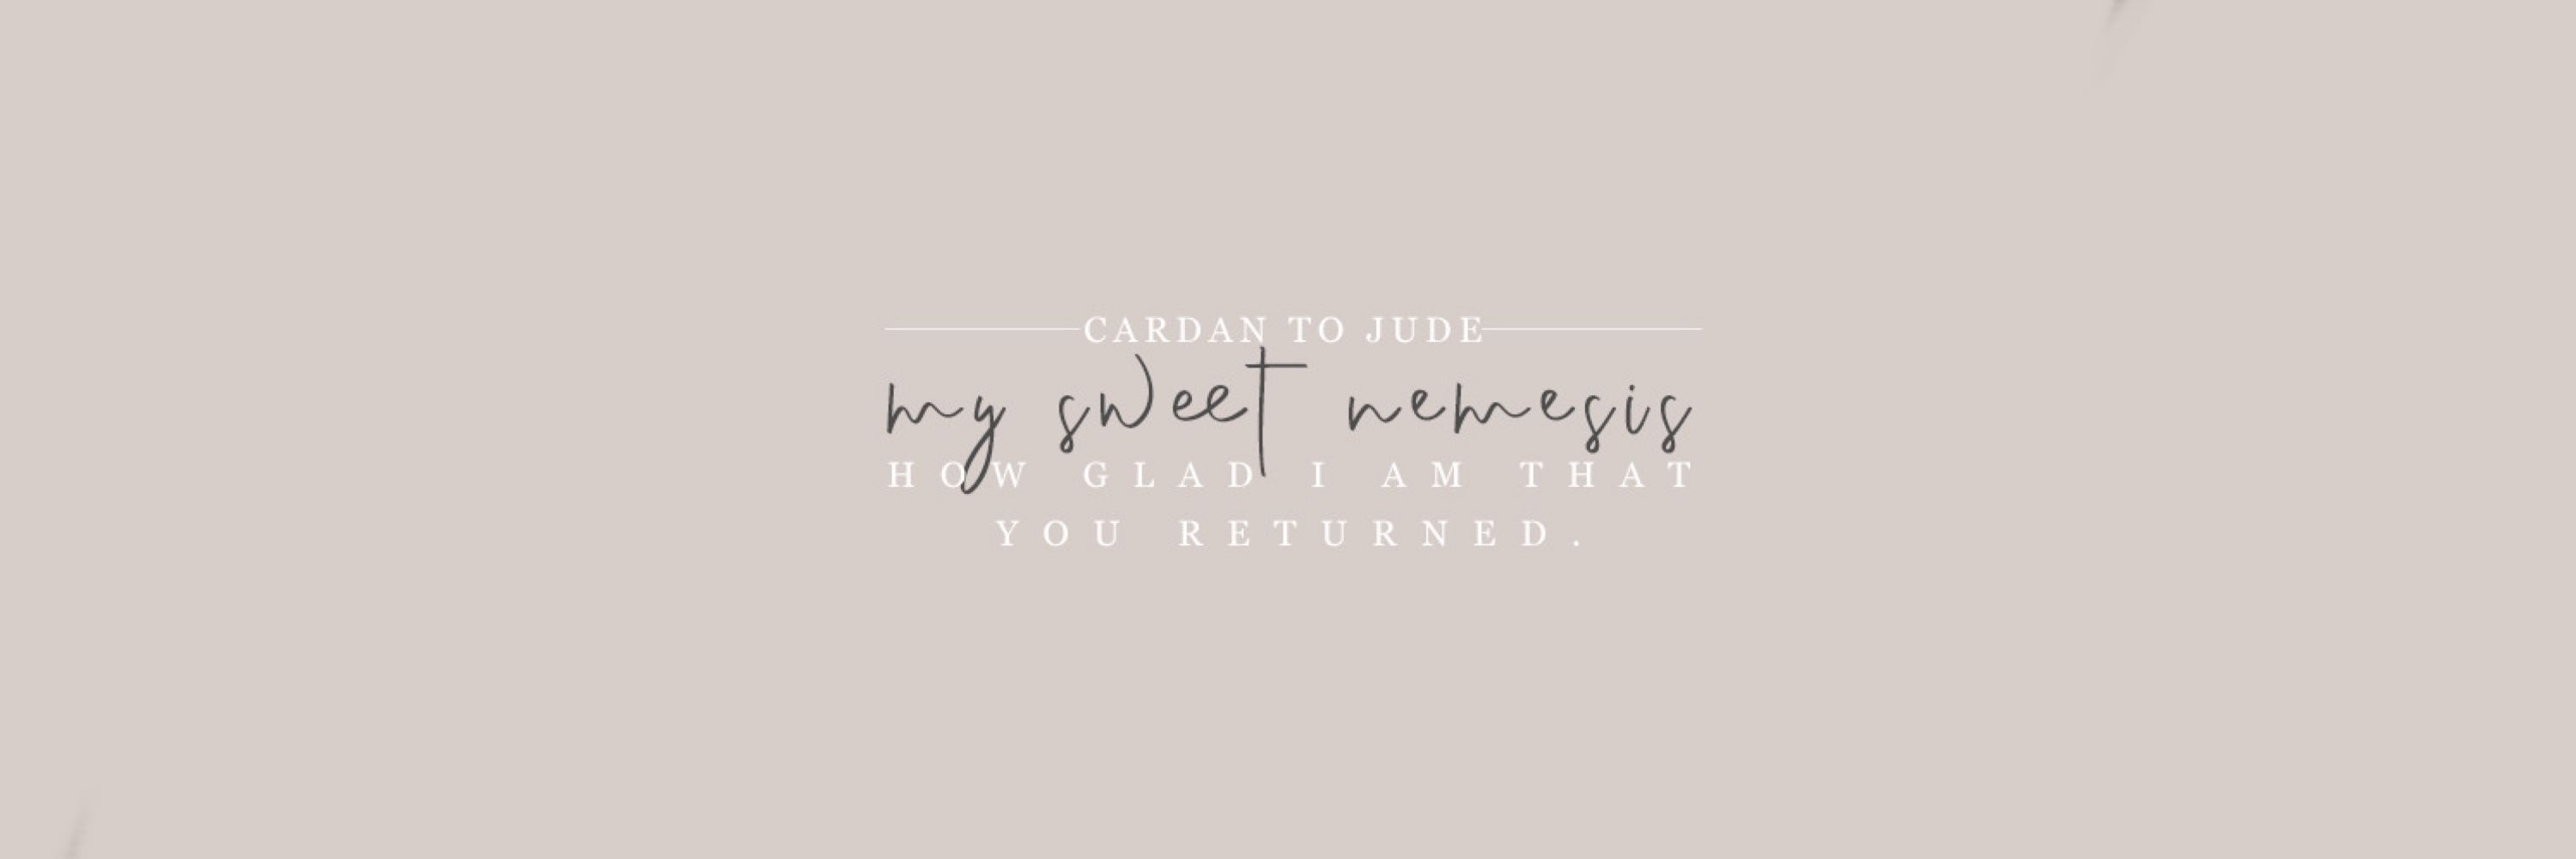 CARDAN TO JUDE
my sweet nemesis
HOW GLAD I AM THAT
YOU RETURNED.